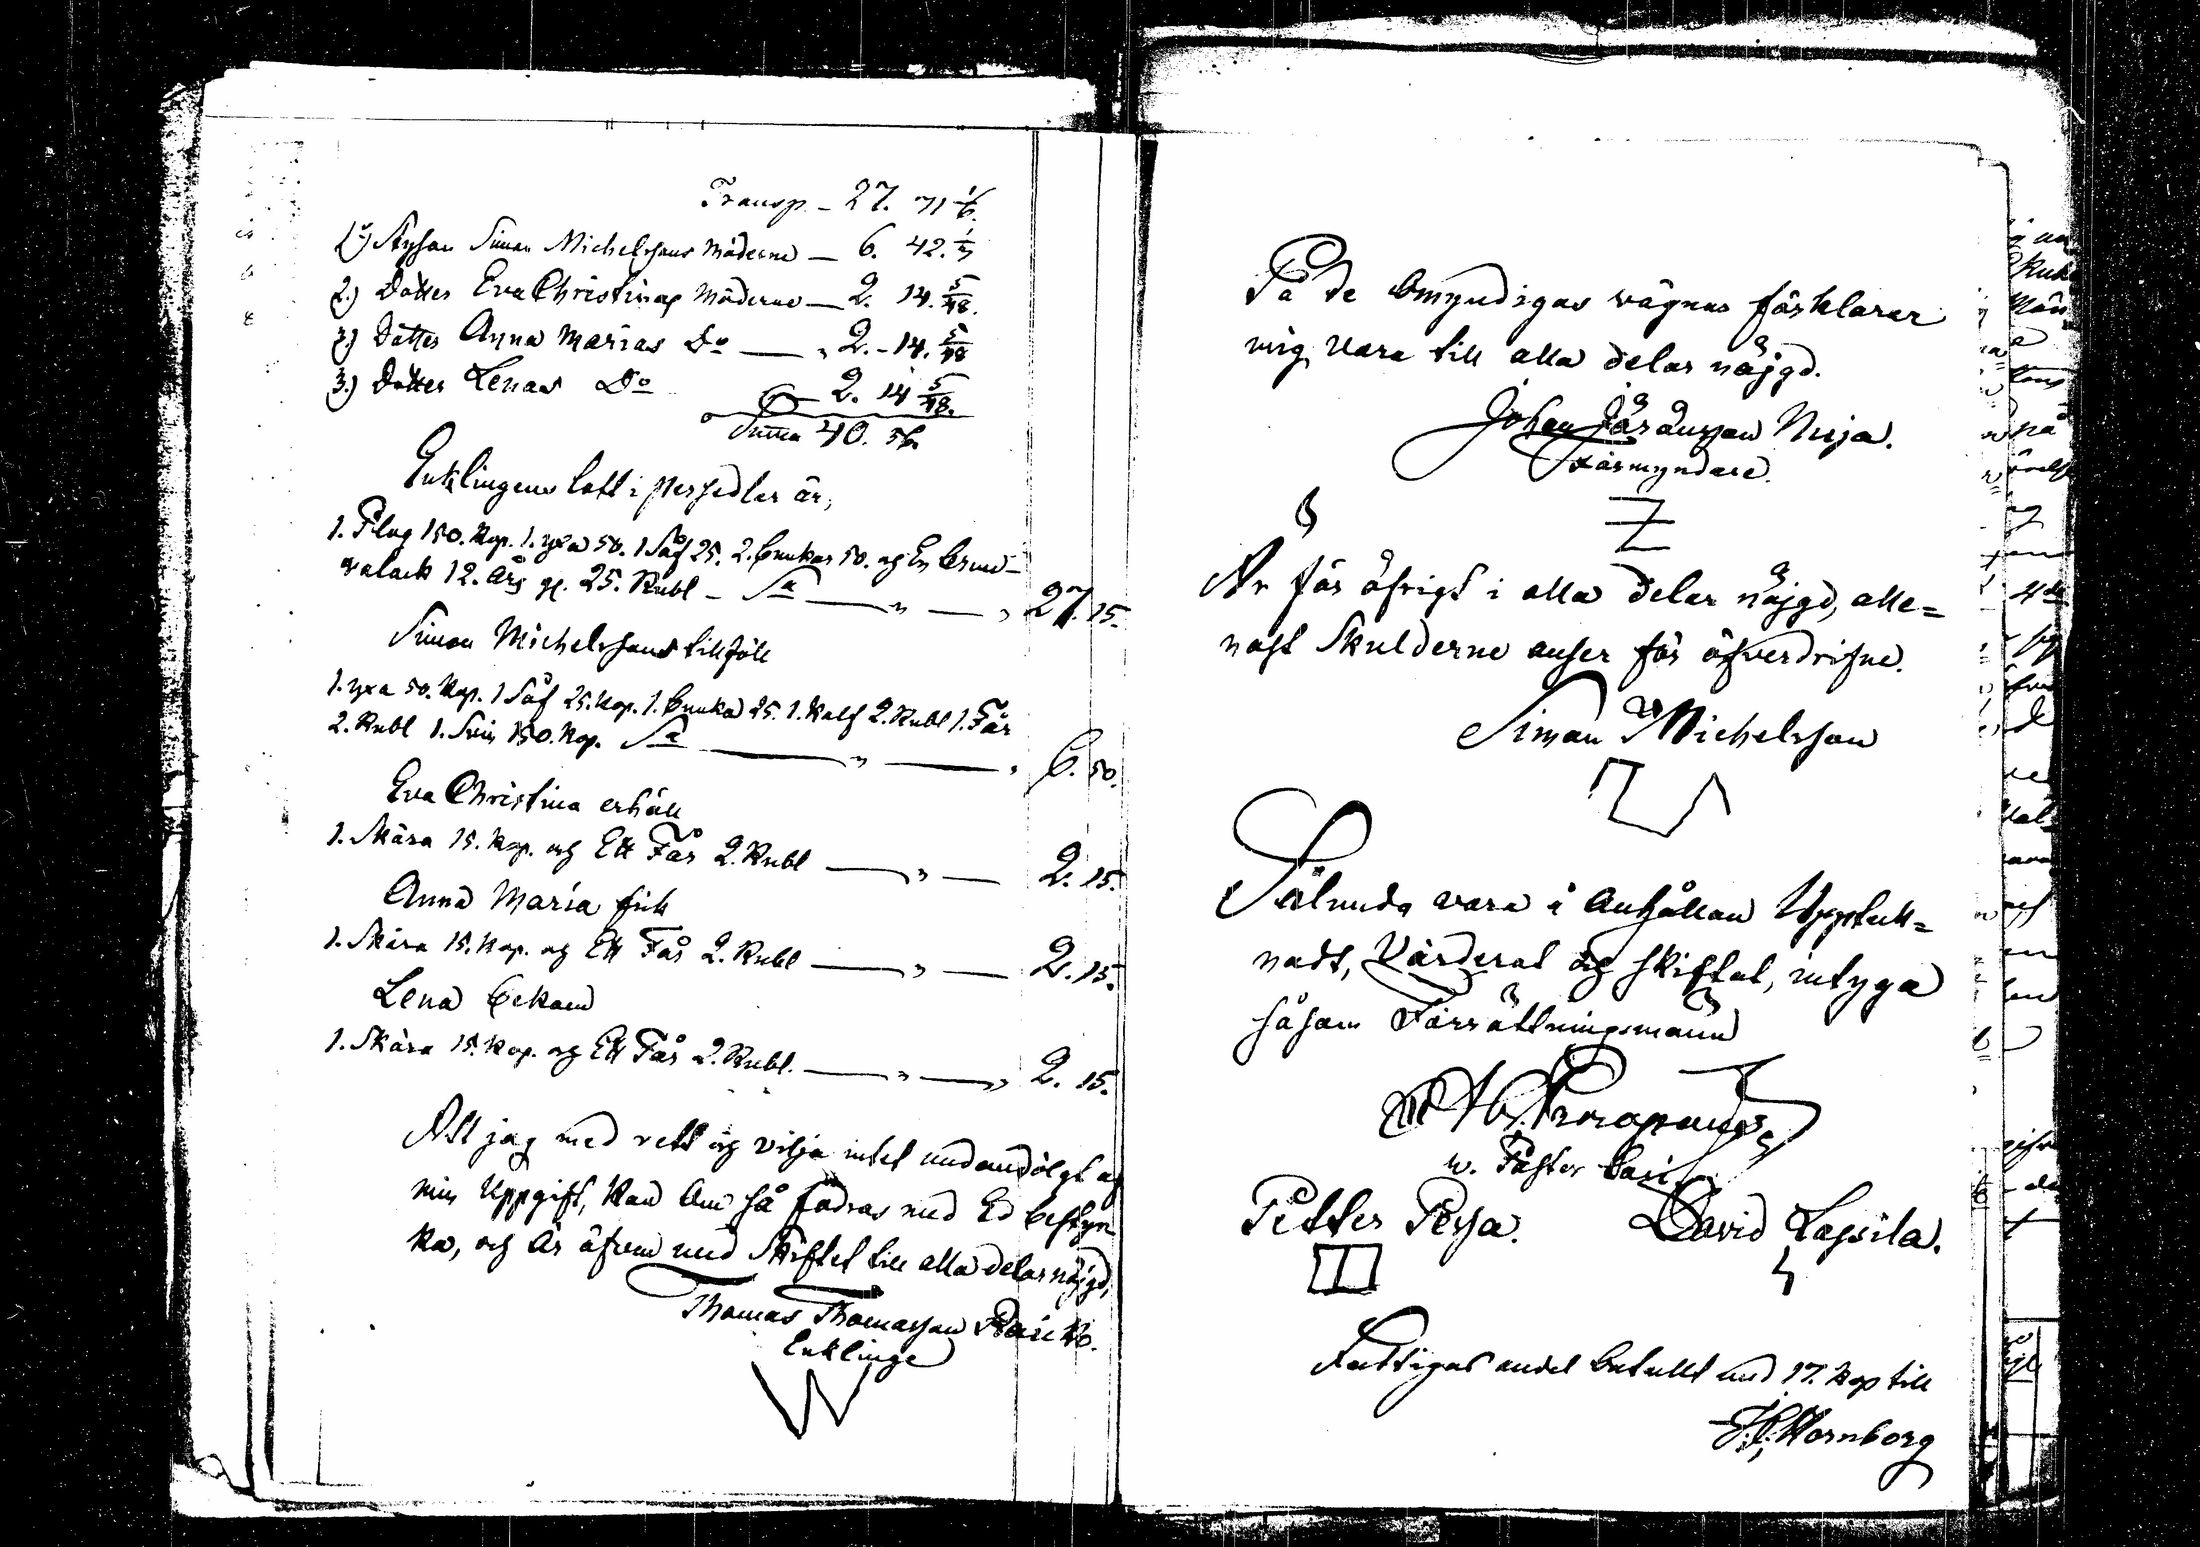 Transp – 27. 71 1/6.
1.) Stysson Simon Michelssons Möderne – 6. 42. 1/3
2.) Dotter Eva Christinas Möderne – 2. 14. 5/18.
3.) Dotter Anna Marias Do — 2. – 14. 5/18
3.) Dotter Lenas Do — 2. 14 5/18.
Summa 40. 56.
Enklingens lott i persedlar är,
1. Plog 150. Kop. 1. yxa 50. 1 Såf 25. 2. bunkar 50. och En brun-
valack 12. års g. 25. Rubl – Sa — " — " 27. 15.
Simon Michelssons tillföll
1. yxa 50. Kop. 1 Såf 25. Kop. 1. bunka 25. 1. Kalf 2. Rubl 1. Får
2. Rubl 1. Svin 150. Kop. Sa — " — " 6. 50.
Eva Christina erhåll
1. Skära 15. Kop. och Ett Får 2. Rubl — " — 2. 15.
Anna Maria fick
1. Skära 15. Kop. och Ett Får 2. Rubl — " — 2. 15.
Lena bekom
1. Skära 15. Kop. och Ett Får 2. Rubl. — " — " 2. 15.
Att jag med vett och vilja intet undandölgt af
min Uppgift, Kan Om så fodras med Ed bestyr-
ka, och är äfven med Skiftet till alla delar nöjgd,
Thomas Thomasson
Enklinge
På de Omyndigas vägnar förklarar
mig vara till alla delar nöjgd.
Johan Göransson Nisja.
Förmyndare.
Är för öfrigt i alla delar nöjgd, alle=
nast Skulderne anser för öfverdrifne.
Simon Michelsson
Sålunda vara i Anhållan Upptek=
nadt, Värderat och skiftat, intyga
såsom Förrättningsmänn
Petter Pessa. David Lassila.
Fattigas andel betallt med 17. Kop till
Hornborg